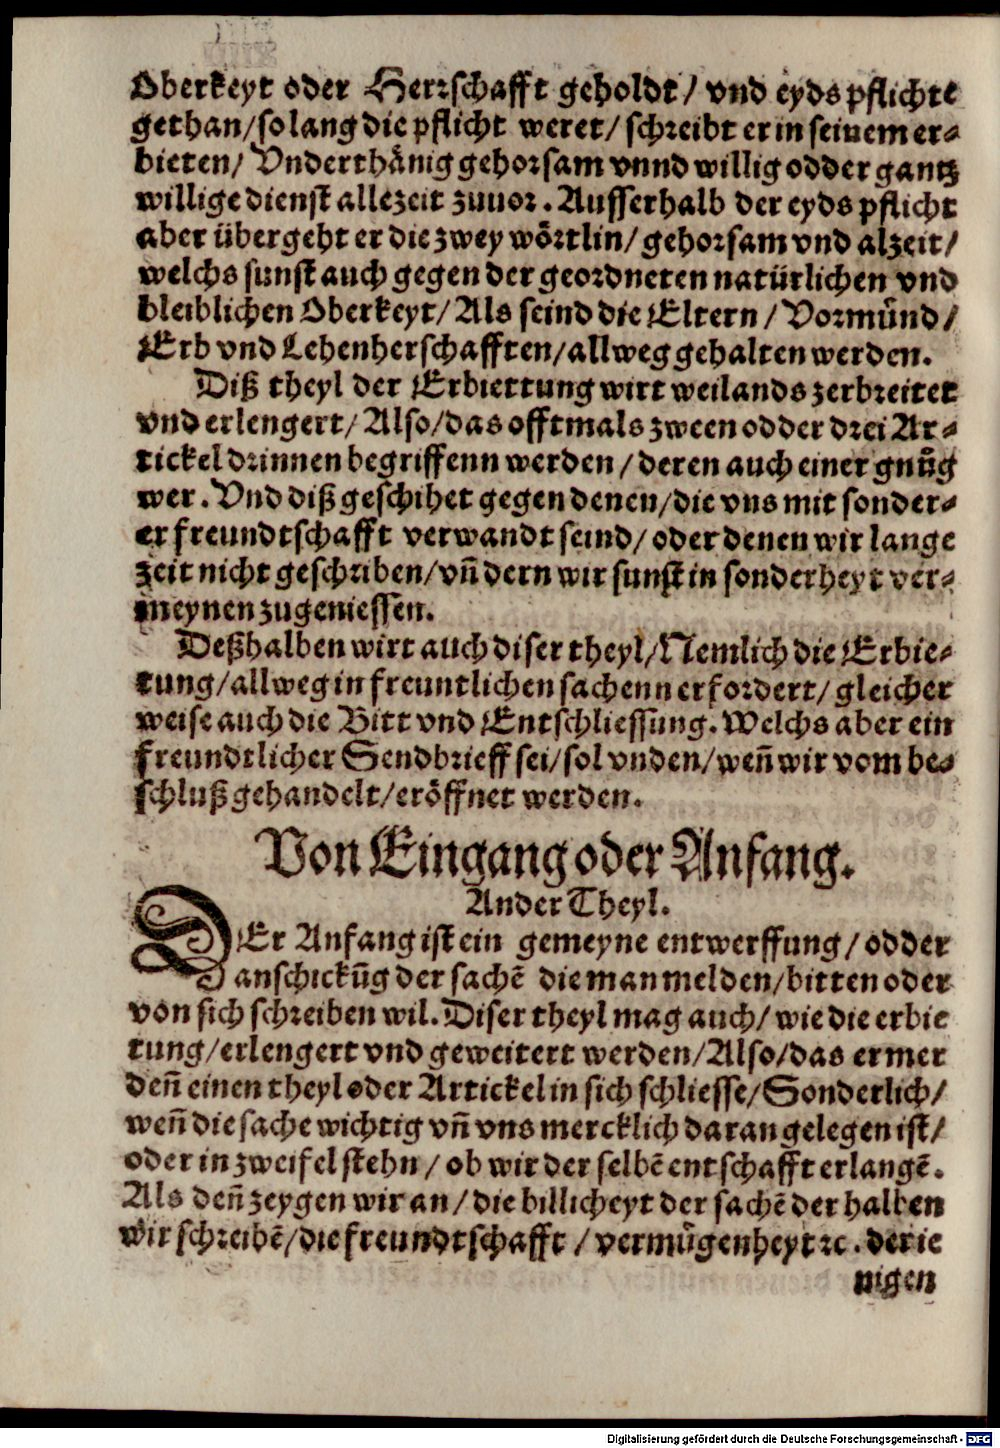 Oberkeyt oder Herrschafft geholdt / vnd eyds pflichte
gethan/so lang die pflicht weret/ schreibt er in seinem er-
bieten/ Vnderthänig gehorsam vnnd willig odder gantz
willige dienst allezeit zuuor. Ausserhalb der eyds pflicht
aber übergeht er die zwey wörtlin/ gehorsam vnd alzeit/
welchs sunst auch gegen der geordneten natürlichen vnd
bleiblichen Oberkeyt/ Als seind die Eltern / Vormünd/
Erb vnd Lehenherschafften/allweg gehalten werden.
Diß theyl der Erbiettung wirt weilands zerbreitet
vnd erlengert/ Also/das offtmals zween odder drei Ar-
tickel drinnen begriffenn werden / deren auch einer gnůg
wer. Vnd diß geschihet gegen denen/die vns mit sonder-
er freundtschafft verwandt seind/ oder denen wir lange
zeit nicht geschriben/vñ dern wir sunst in sonderheyt ver-
meynen zugeniessen.
Deßhalben wirt auch diser theyl/Nemlich die Erbie-
tung/allweg in freuntlichen sachenn erfordert/ gleicher
weise auch die Bitt vnd Entschliessung. Welchs aber ein
freundtlicher Sendbrieff sei/sol vnden/weñ wir vom be-
schluß gehandelt/eröffnet werden.
Von Eingang oder Anfang.
Ander Theyl.
DEr Anfang ist ein gemeyne entwerffung/ odder
anschickũg der sachẽ die man melden/bitten oder
von sich schreiben wil. Diser theyl mag auch/ wie die erbie
tung/erlengert vnd geweitert werden/Also/das er mer
deñ einen theyl oder Artickel in sich schliesse/Sonderlich/
weñ die sache wichtig vñ vns mercklich daran gelegen ist/
oder in zweifel stehn / ob wir der selbẽ entschafft erlangẽ.
Als deñ zeygen wir an / die billicheyt der sachẽ der halben
wir schreibẽ/die freundtschafft / vermügenheyt ꝛc. der ie
nigen
Digitalisierung gefördert durch die Deutsche Forschungsgemeinschaft - DFG